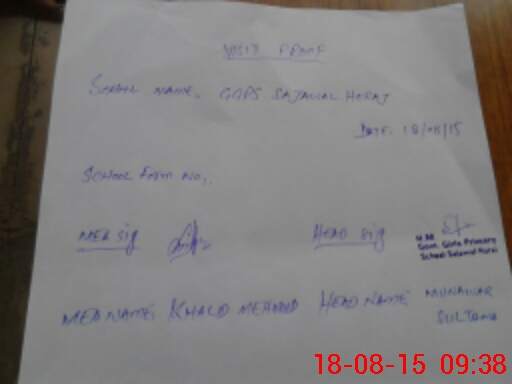 VISIT PROOF
SCHOOL NAME. GGPS SAJAWAL HORAJ
DATE: 18/08/15
SCHOOL FORM NO.
MEA Sig HEAD Sig
H.M
Govt. Girls Primary
School
MEA NAME: KHALID MEHMOOD HEAD NAME MUNAWAR
SULTANA
18-08-15 09:38